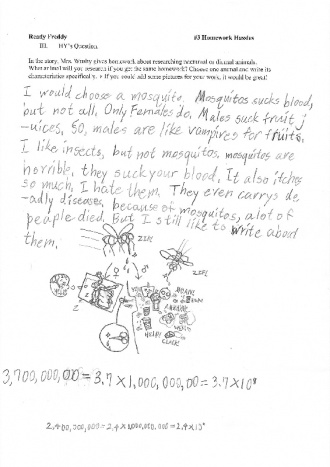 Ready Freddy #3 Homework Hassles
III. HY's Question.
In the story, Mrs. Wushy gives homework about researching nocturnal or diurnal animals.
What animal will you research if you get the same homework? Choose one animal and write its
characteristics specifically. If you could add some pictures for your work, it would be great!
I would choose a mosquito. Mosquitos sucks blood,
but not all. Only Females do. Males suck fruit j
-uices, So, males are like vampires for fruits.
I like insects, but not mosquitos. mosquitos are
horrible, they suck your blood. It also itches
so much, I hate them. They even carrys de
-adly diseases, because of mosquitos, a lot of
people died. But I still like to write about
them.
♀ ♂
3,700,000,00 = 3.7 X 1,000,000,00 = 3.7 X 10⁸